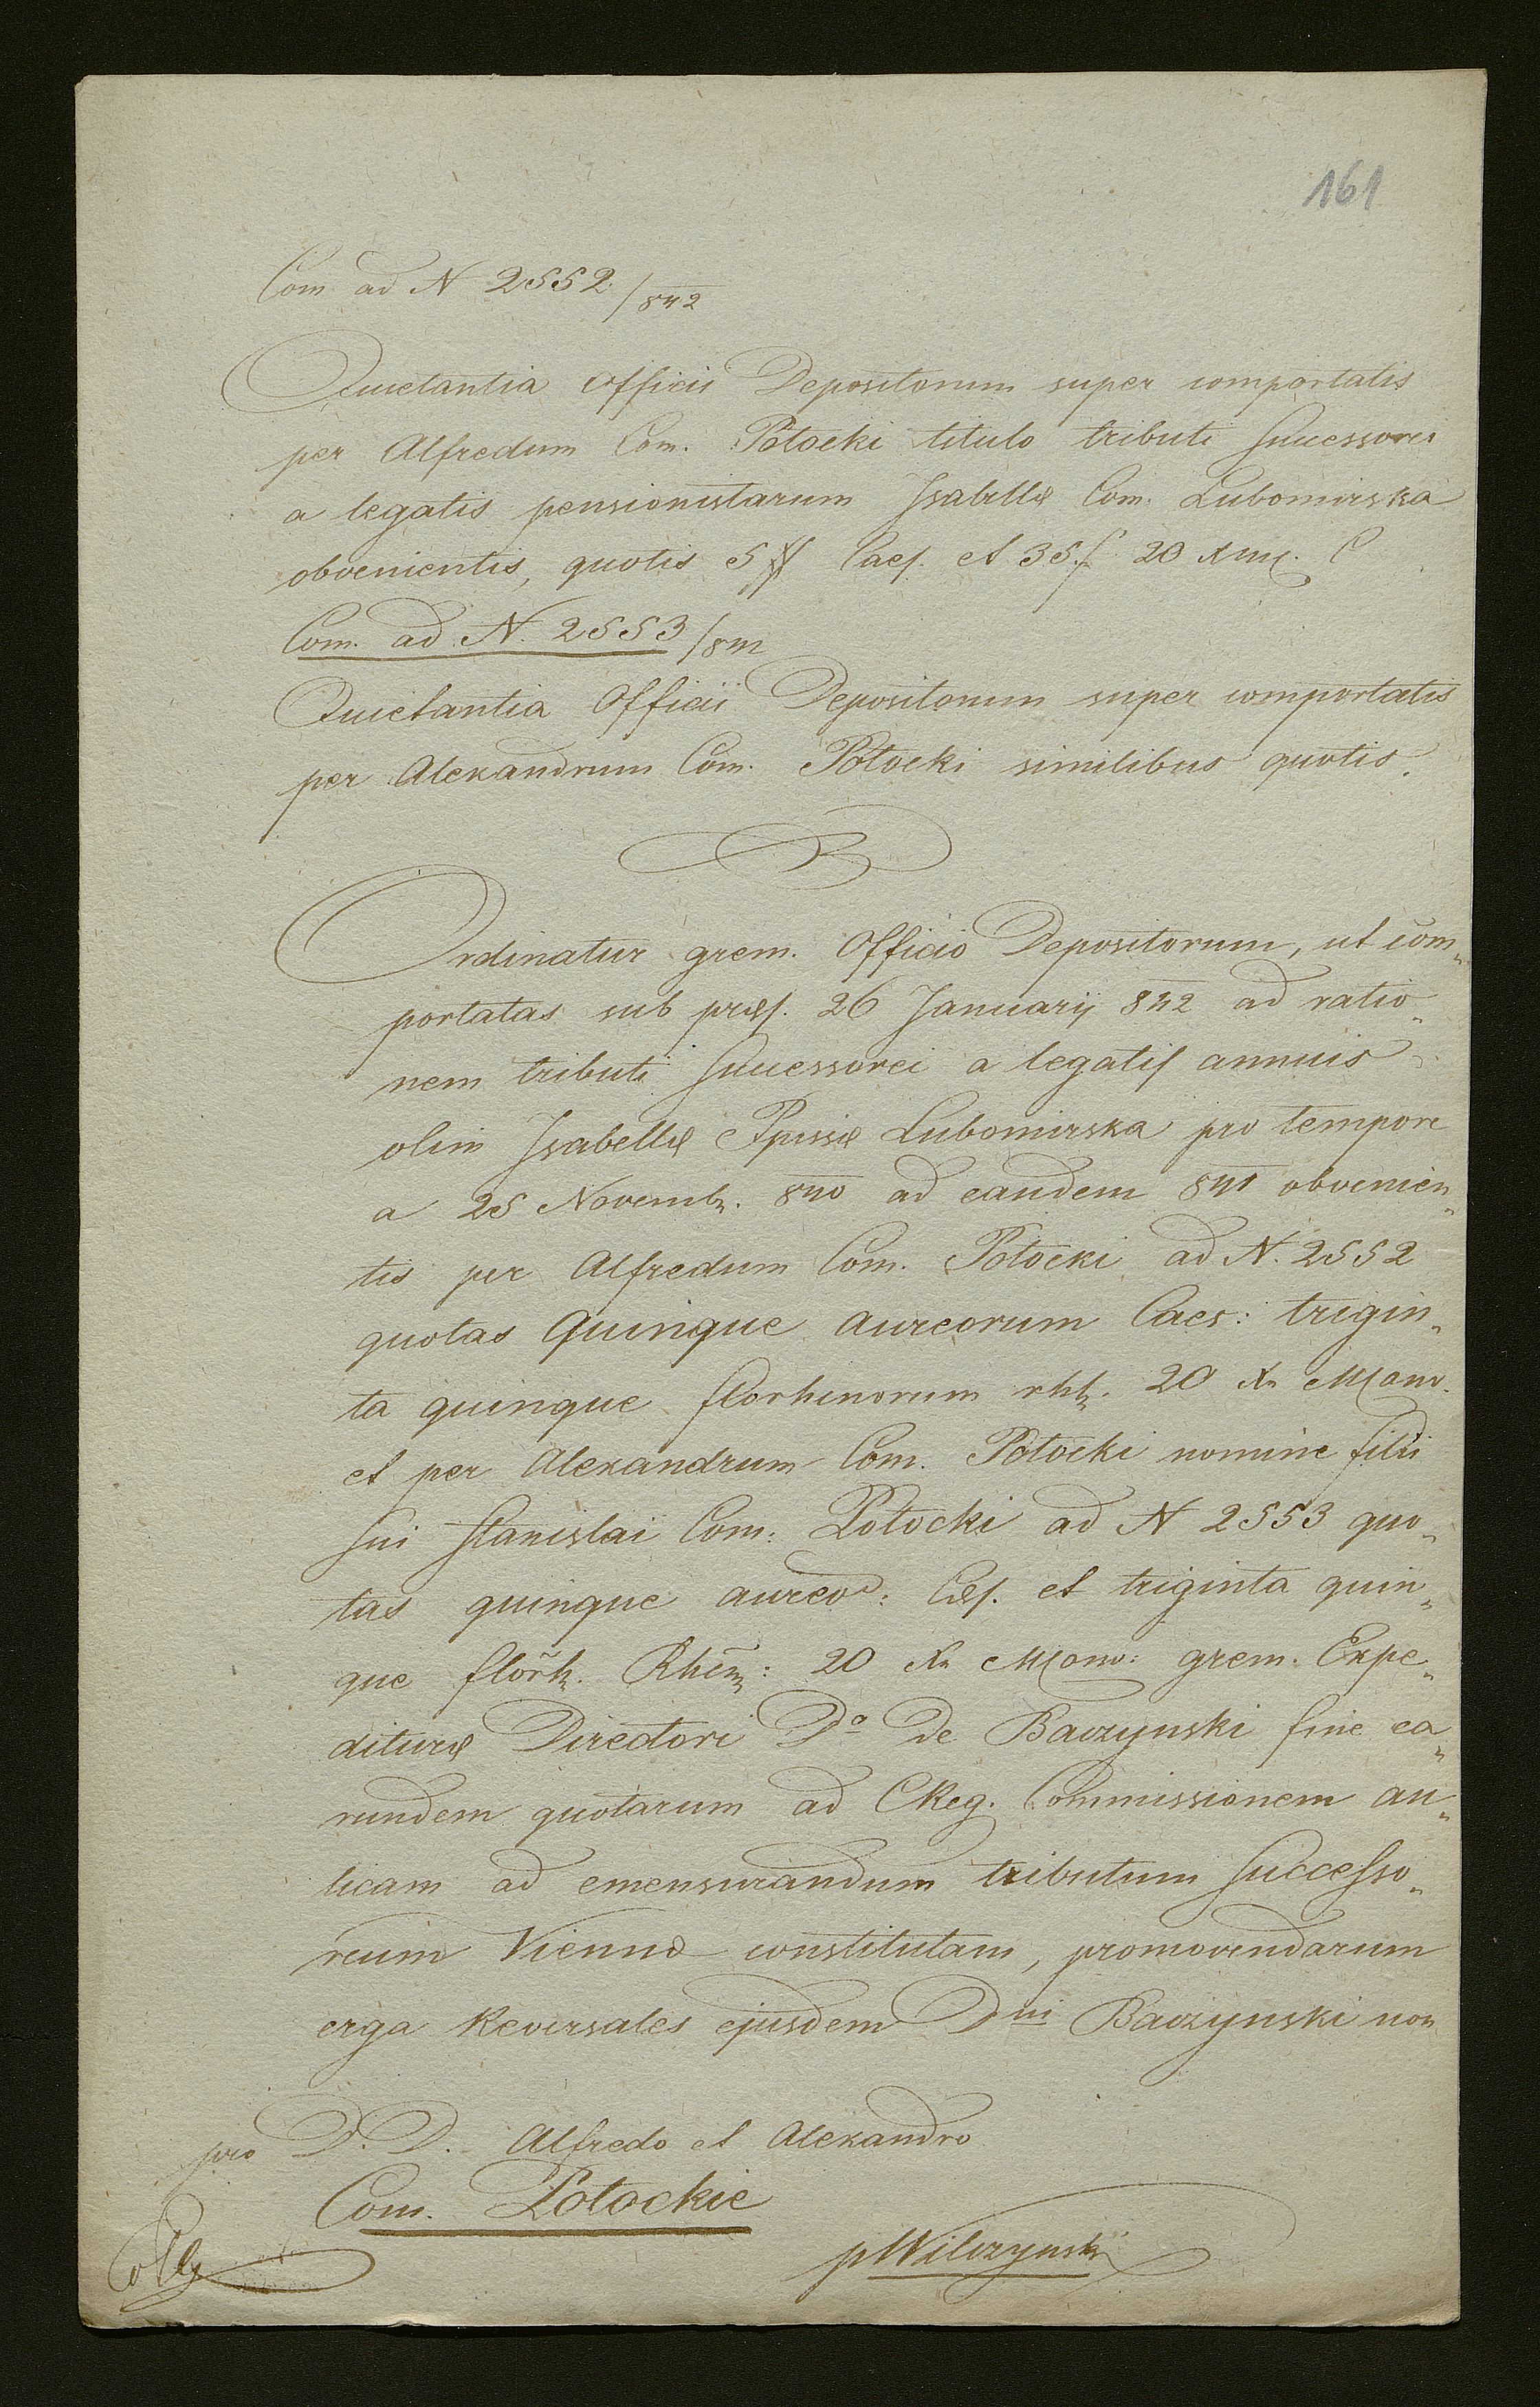 161
Com ad N 2552/842
Quietantia Officii Depositorum super comportatis
per Alfredum Com. Potocki titulo tributi successorei
a legatis pensionistarum Isabellæ Com. Lubomirska
obvenientis, quotis 5 # Caes. et 35 f. 20 xr
Com. ad N. 2553/842
Quietantia Officii Depositorum super comportatis
per Alexandrum Com. Potocki similibus quotis.
Ordinatur grem. Officio Depositorum, ut com„
portatas sub præs. 26 Januarij 842 ad ratio„
nem tributi successorei a legatis annuis
olim Isabellæ Ppissæ Lubomirska pro tempore
a 25 Novembr. 840 ad eandem 841 obvenien„
tis per Alfredum Com. Potocki ad N. 2552
quotas quinque aureorum Caes: trigin„
ta quinque florhenorum rhh. 20 xr Mono.
et per Alexandrum Com. Potocki nomine filii
sui Stanislai Com: Potocki ad N 2553 quo„
tas quinque aureor: Cæs. et triginta quin„
que florh. Rhen: 20 xr Mono: grem. Expe„
dituræ Directori Dº De Baczynski fine ea„
rundem quotarum ad CReg. Commissionem au„
licam ad emensurandum tributum successo„
reum Viennæ constitutam, promovendarum
erga Reversales ejusdem Dni Baczynski non
pro D. D. Alfredo et Alexandro
Com. Potockie
pWilczynski